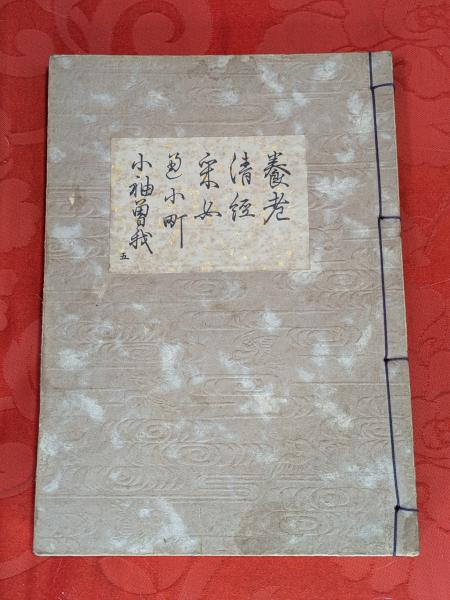 養老
清経
采女
通小町
小袖曽我
五